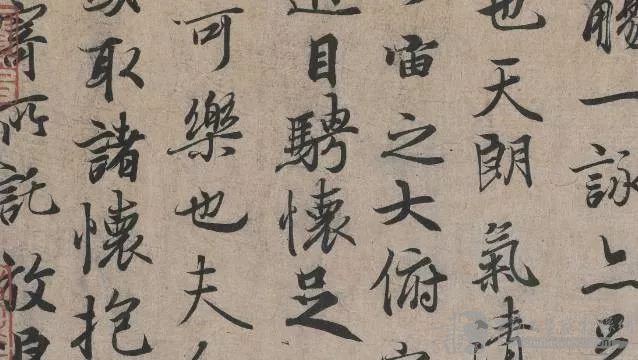 觴一詠亦足
也天朗氣清
宙之大俯
遊目騁懷足
可樂也夫
或取諸懷抱
寄所託放浪